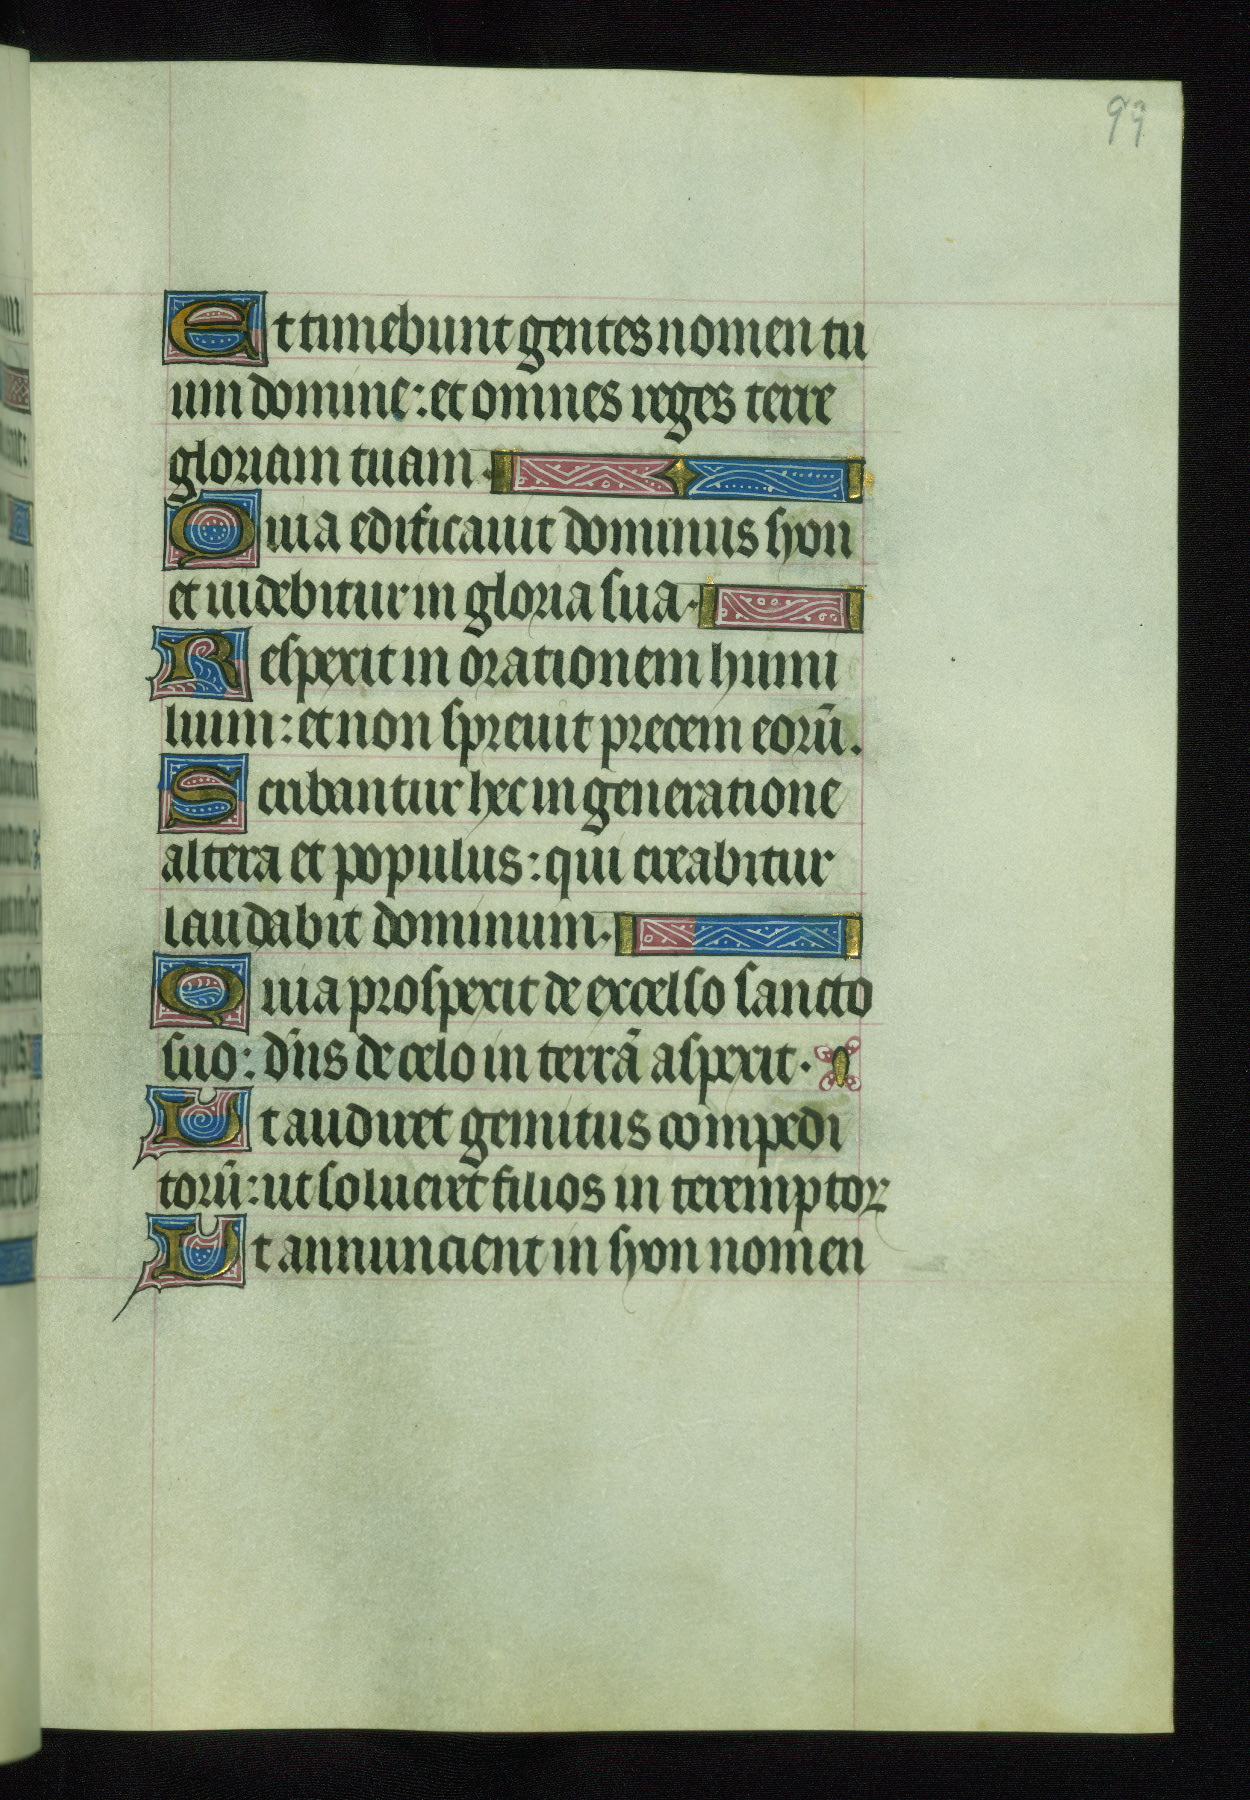 99
Et timebunt gentes nomen tu
um domine: et omnes reges terre
gloriam tuam.
Quia edificauit dominus syon
et uidebitur in gloria sua.
Respexit in orationem humi
lium: et non spreuit precem eorū.
Scribantur hec in generatione
altera et populus: qui creabitur
laudabit dominum.
Quia prospexit de excelso sancto
suo: dn̄s de celo in terrā aspexit.
Ut audiret gemitus compedi
torū: ut solueret filios in teremptoꝝ
Ut annuncient in syon nomen